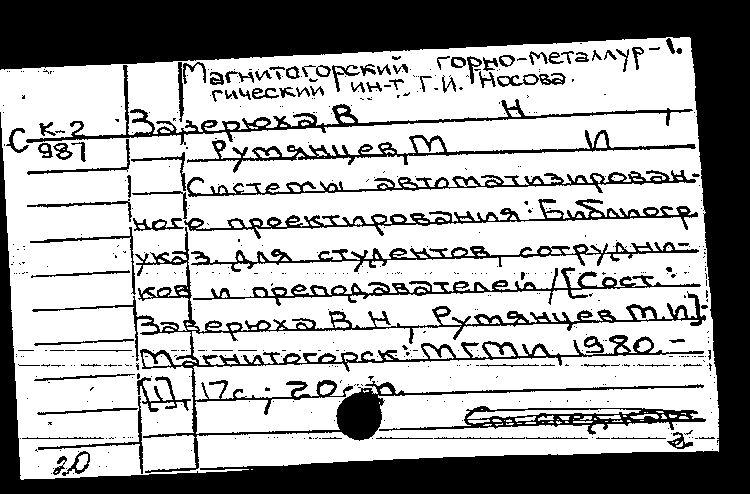 Магнитогорский горно-металлур- 1.
гический ин-т Г.И. Носова.
С К-2
987
Заверюха, В Н ,
Румянцев, М И
Системы автоматизирован-
ного проектирования: Библиогр.
указ. для студентов, сотрудни-
ков и преподавателей / [Сост.:
Заверюха В.Н., Румянцев М.И].
Магнитогорск: МГМИ, 1980.-
[1], 17с.; 20 с
См. след. карт
2
20